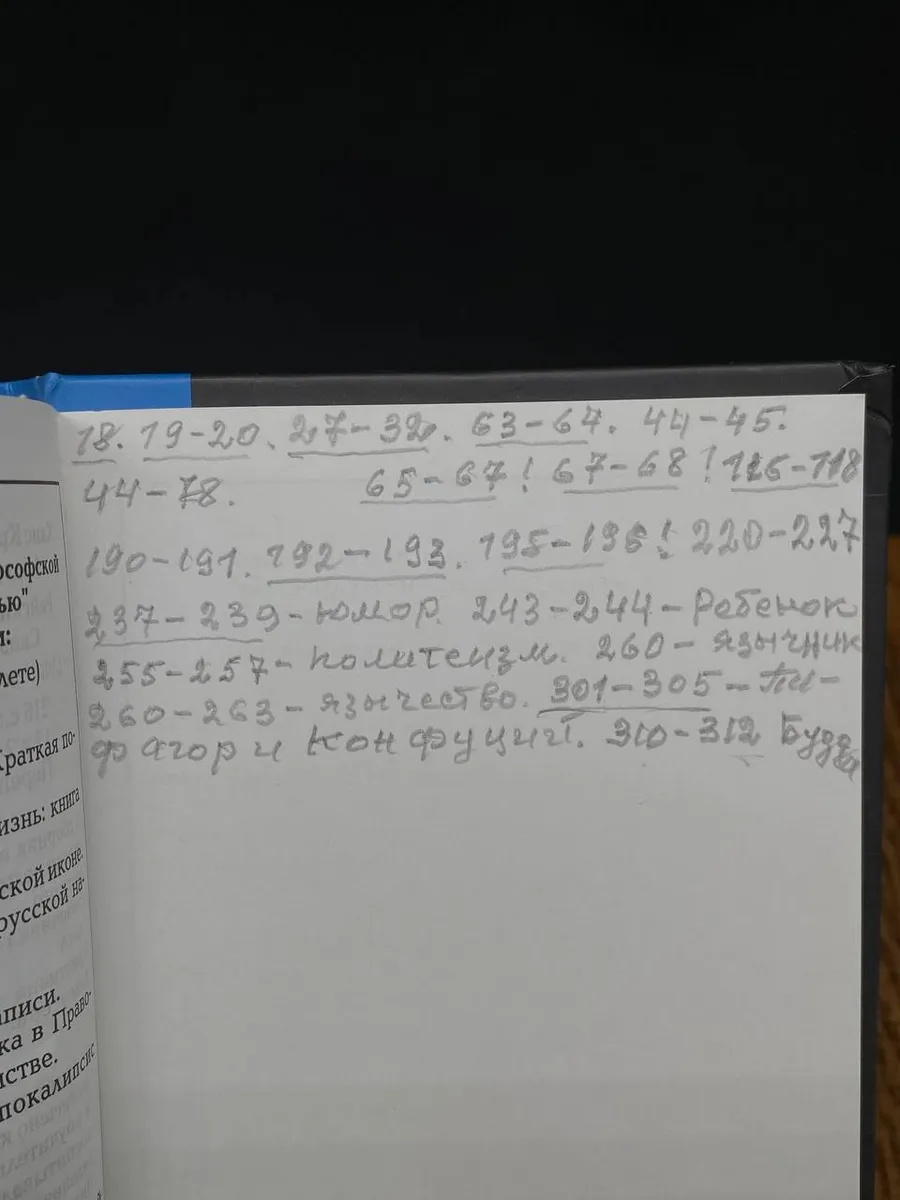 18. 19-20. 27-32. 63-64. 44-45.
44-78. 65-67! 67-68! 116-118
190-191. 192-193. 195-196! 220-227
237-239-юмор. 243-244-Ребенок
255-257-политеизм. 260-язычник
260-263-язычество. 301-305-Пи-
фагор и Конфуций. 310-312 Будда
ософской
ью"
и:
лете)
Краткая по-
изнь: книга
ской иконе.
русской на-
аписи.
ка в Право-
нстве.
покалипсис